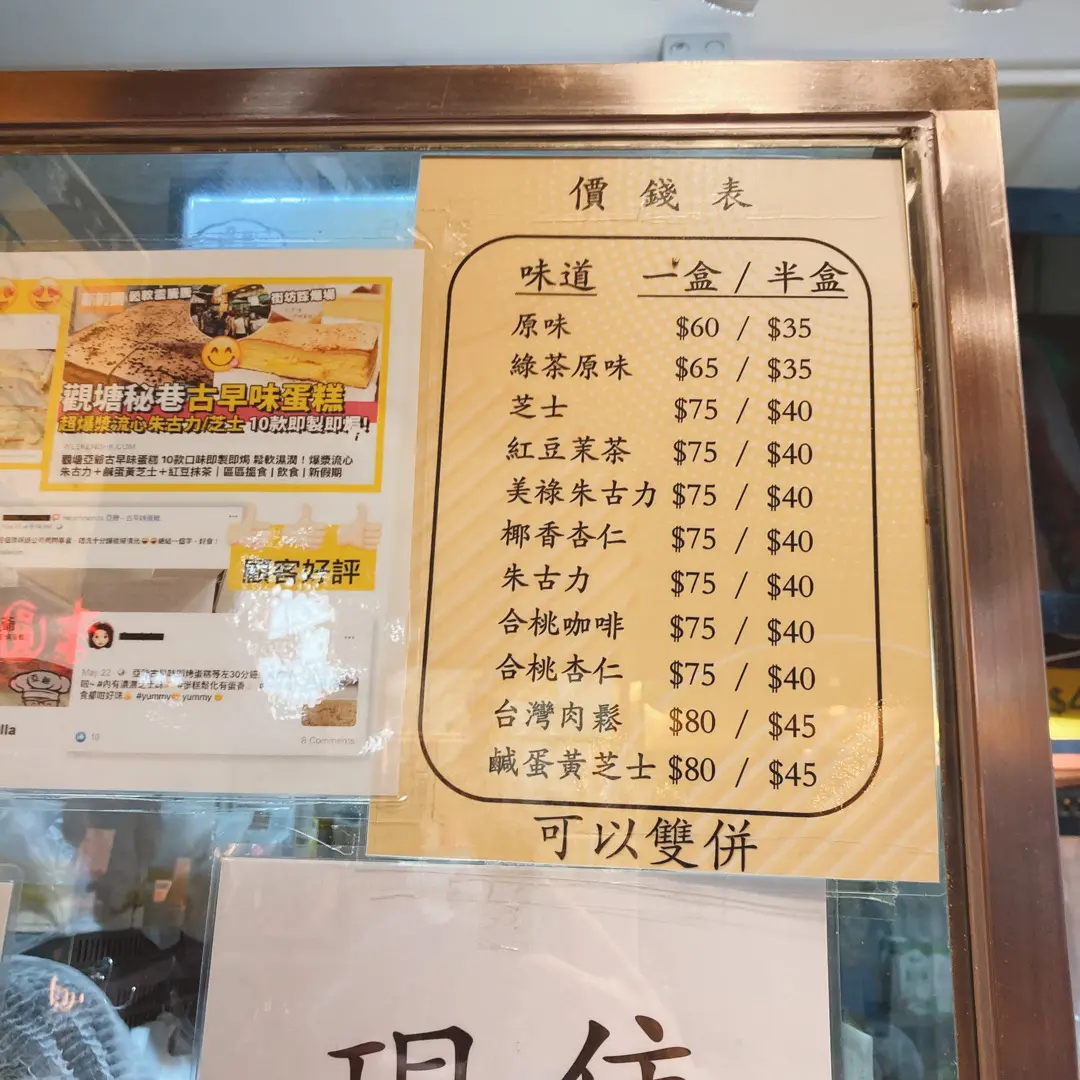 價錢表
味道 一盒 / 半盒
原味 $60 / $35
綠茶原味 $65 / $35
芝士 $75 / $40
紅豆茉茶 $75 / $40
美祿朱古力 $75 / $40
椰香杏仁 $75 / $40
朱古力 $75 / $40
合桃咖啡 $75 / $40
合桃杏仁 $75 / $40
台灣肉鬆 $80 / $45
鹹蛋黃芝士 $80 / $45
可以雙併
觀塘秘巷古早味蛋糕
超爆漿流心朱古力/芝士 10款即製即焗!
觀塘亞爺古早味蛋糕 10款口味即製即焗 鬆軟濕潤！爆漿流心
朱古力＋鹹蛋黃芝士＋紅豆抹茶 | 區區搵食 | 飲食 | 新假期
顧客好評
May 22
#yummy yummy
10
8 Comments
lla